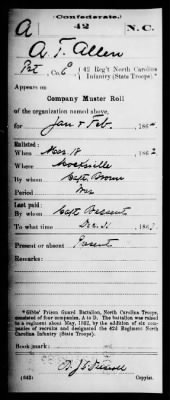 (Confederate.)
A 42 N.C.
A. T. Allen
Pvt, Co. C, 42 Reg't North Carolina
Infantry (State Troops).*
Appears on
Company Muster Roll
of the organization named above,
for Jan & Feb, 1864
Enlisted:
When Mar 18, 1862
Where Mocksville
By whom Capt. Brown
Period War
Last paid:
By whom Capt.
To what time Dec. 31, 186
Present or absent Present
Remarks:
*Gibbs' Prison Guard Battalion, North Carolina Troops,
consisted of four companies, A to D. The battalion was raised
to a regiment about May, 1862, by the addition of six com-
panies of recruits and designated the 42d Regiment North
Carolina Infantry (State Troops).
Book mark:
(642) Copyist.